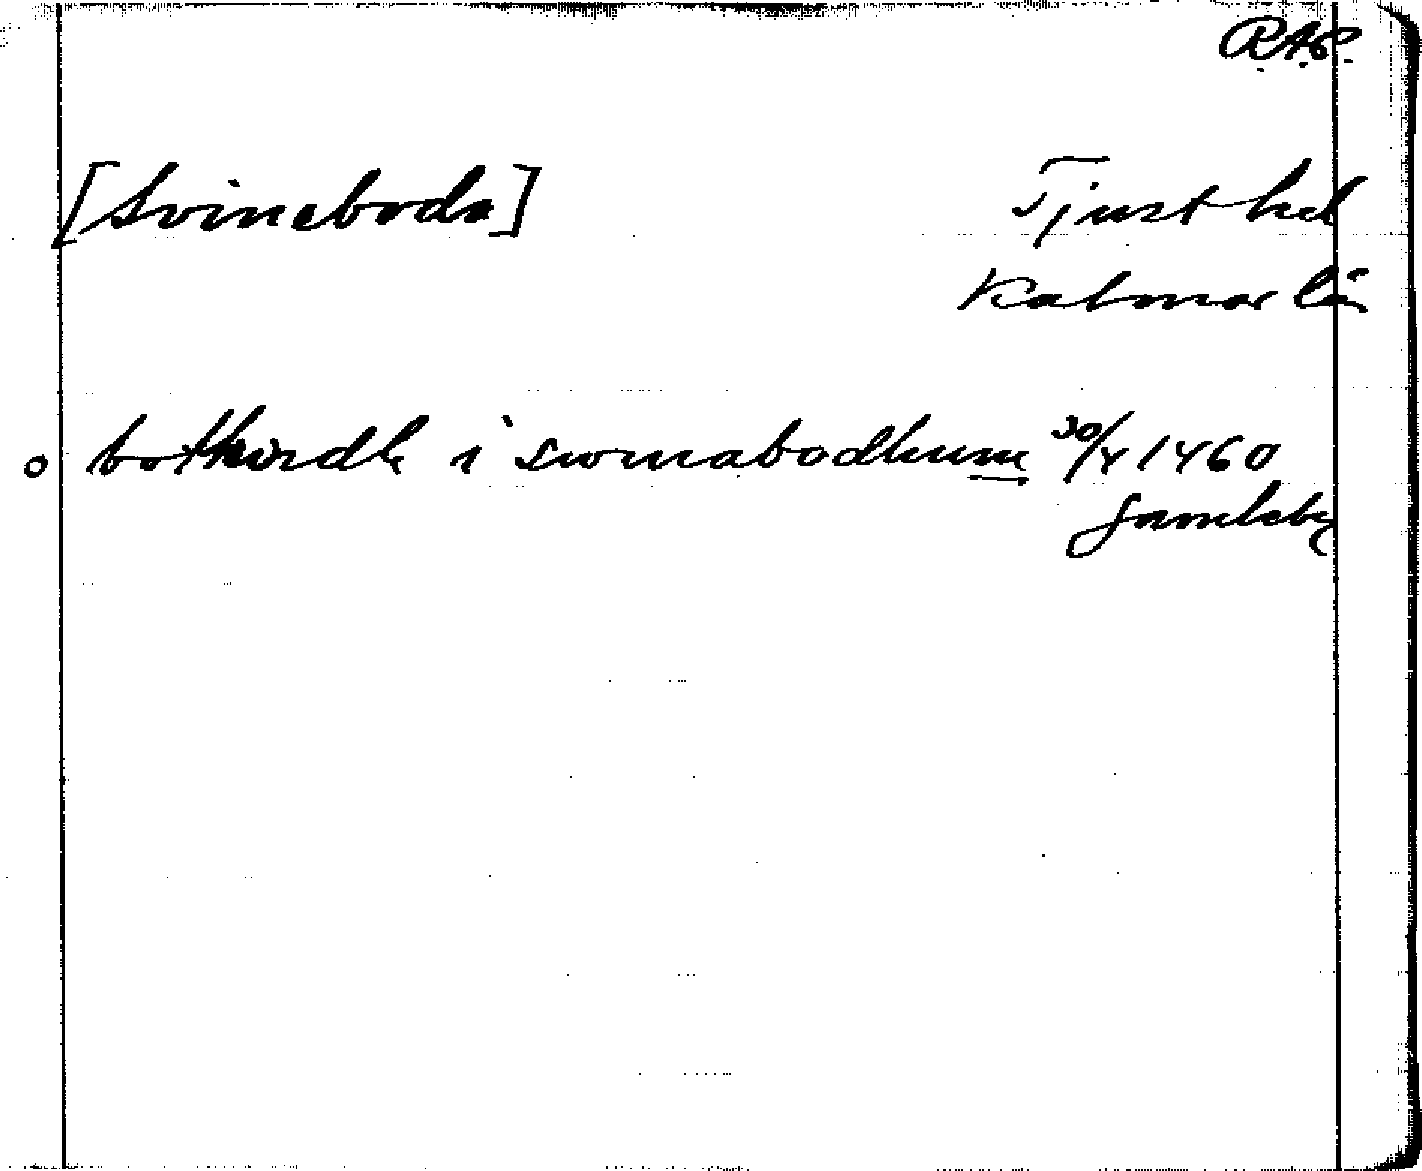 R.A.P.
[Svineboda] Tjust hd
Kalmar län
o bothwidh i swinabodhum 30/4 1460
Gamleby